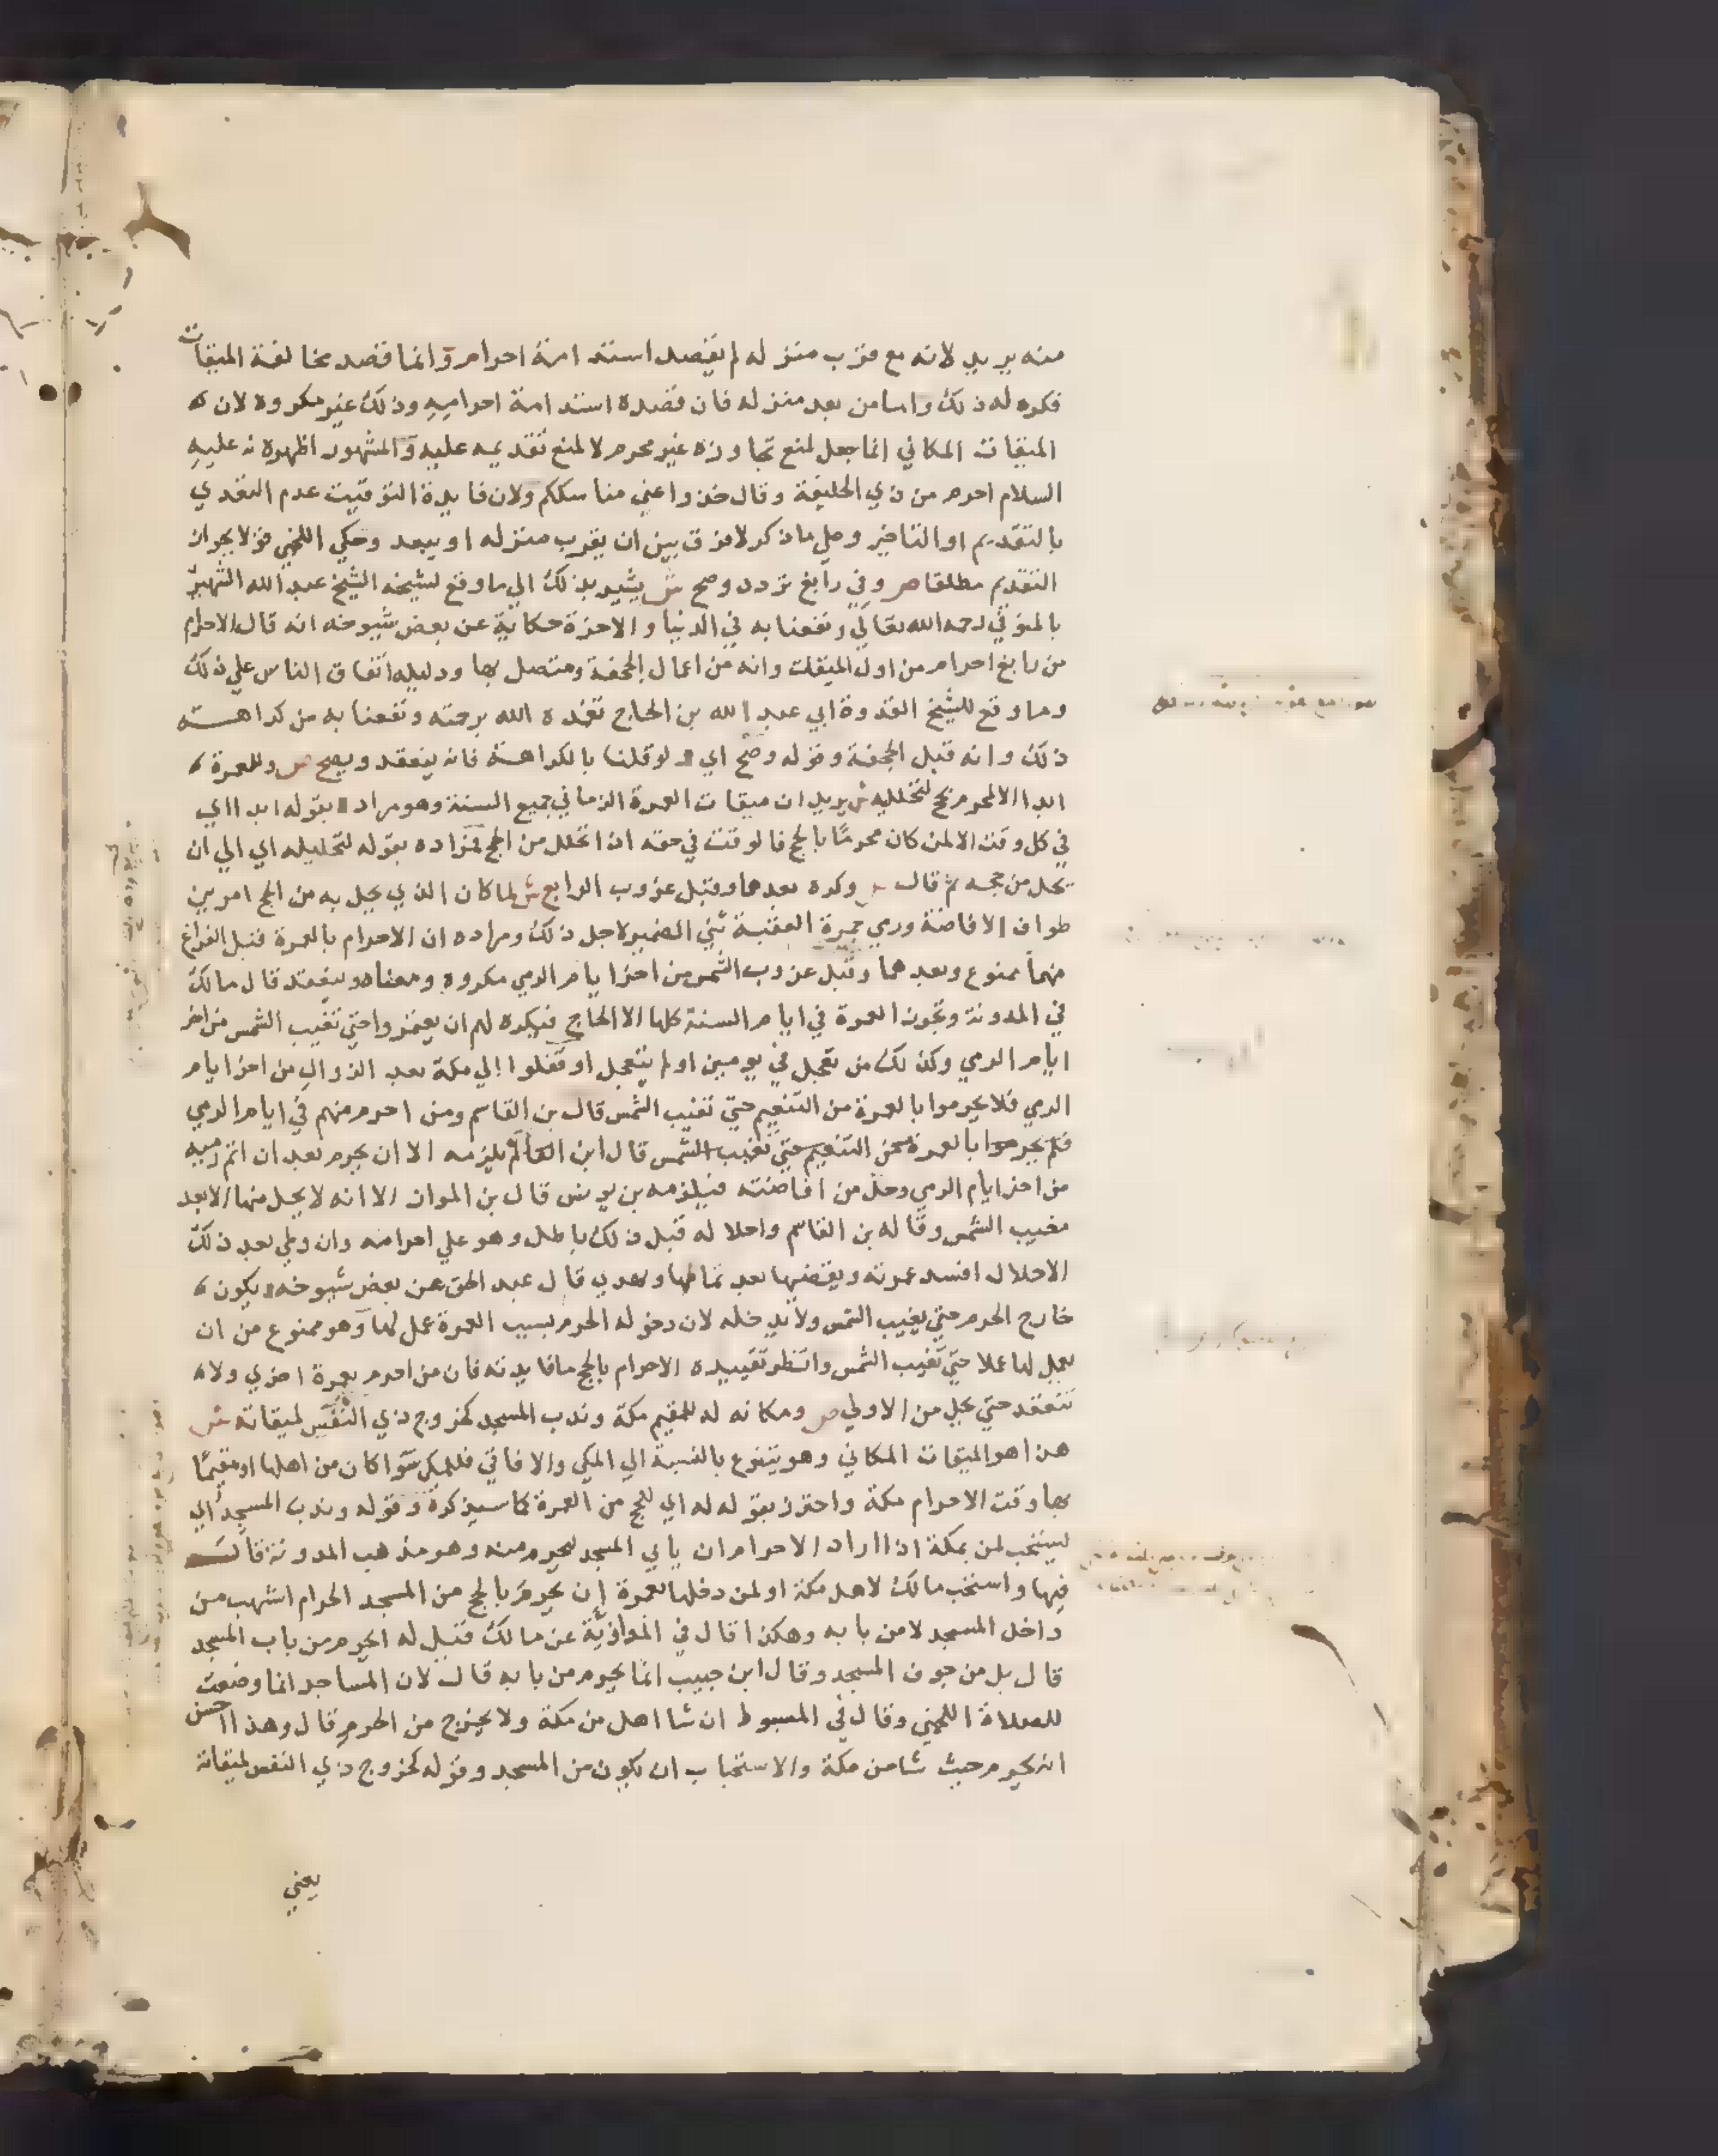 منه يريد لانه مع قرب منزله لم يقصد استدامة احرام وانما قصد مخالفة الميقات
فكره له ذلك واما من بعد منزله فان قصده استدامة احراميه وذلك غير مكروه لان
الميقات المكاني انما جعل لمنع تجاوزه غير محرم لا لمنع تقديمه عليه والمشهور اظهر لانه عليه
السلام احرم من ذي الحليفة وقال خذوا عني مناسككم ولان فايدة التوقيت عدم التعدي
بالتقديم او التاخير وعلي ما ذكر لا فرق بين ان يقرب منزله او يبعد وحكي اللخمي قولا بجواز
التقديم مطلقا ص وفي رابغ تردد وصح ش يشير بذلك الي ما وقع لشيخه الشيخ عبد الله الشهير
بالمنوفي رحمه الله تعالي ونفعنا به في الدنيا والاخرة حكاية عن بعض شيوخه انه قال الاحرام
من رابغ احرام من اول الميقات وانه من اعمال الجحفة ومتصل بها ودليله اتفاق الناس علي ذلك
وما وقع للشيخ القدوة ابي عبد الله بن الحاج تغمده الله برحمته ونفعنا به من كراهته
ذلك وانه قبل الجحفة وقوله وصح اي لو قلنا بالكراهة فانه ينعقد ويصح ص وللعمرة
ابدا الا لمحرم بحج لتحلليه ش يريد ان ميقات العمرة الزماني جميع السنة وهو مراده بقوله ابدا اي
في كل وقت الا لمن كان محرمًا بالحج فالوقت في حقه اذا تحلل من الحج مراده بقوله لتحليله اي الي ان
يحل من حجه ثم قال ص وكره بعدهما وقبل غروب الرابع ش لما كان الذي يحل به من الحج امرين
طواف الافاضة ورمي جمرة العقبة ثني الضمير لاجل ذلك ومراده ان الاحرام بالعمرة قبل الفراغ
منهما ممنوع وبعدهما وقبل غروب الشمس من اخر ايام الرمي مكروه ومعناه وينعقد قال مالك
في المدونة وتجوز العمرة في ايام السنة كلها الا الحاج فيكره لهم ان يعتمروا حتي تغيب الشمس من اخر
ايام الرمي وكذلك من تعجل في يومين او لم يتعجل او قفلوا الي مكة بعد الزوال من اخر ايام
الرمي فلا يحرموا بالعمرة من التنعيم حتي تغيب الشمس قال بن القاسم ومن احرم منهم في ايام الرمي
فلم يحرموا بالعمرة من التنعيم حتي تغيب الشمس قال ابن القاسم لم يلزمه الا ان يحرم بعد ان اتم رميه
من اخر ايام الرمي وحل من افاضته فيلزمه بن يونس قال بن المواز الا انه لا يحل منها الا بعد
مغيب الشمس وقاله بن القاسم واحلاله قبل ذلك باطل وهو علي احرامه وان وطي بعد ذلك
الاحلال افسد عمرته ويقضيها بعد تمامها ويهدي قال عبد الحق عن بعض شيوخه يكون
خارج الحرم حتي يغيب الشمس ولا يدخله لان دخوله الحرم بسبب العمرة عمل لها وهو ممنوع من ان
يعمل لها عملا حتي تغيب الشمس وانظر تقييده الاحرام بالحج ما فايدته فان من احرم بعمرة اخري ولا
تنعقد حتي يحل من الاولي ص ومكانه له للمقيم مكة وندب المسجد كخروج ذي النفس لميقاته ش
هذا هو الميقات المكاني وهو يتنوع بالنسبة الي المكي والافاقي فللمكي سوا كان من اهلها او مقيمًا
بها وقت الاحرام مكة واحترز بقوله له اي للحج من العمرة كما سيذكره وقوله وندب المسجد اي
يستحب لمن بمكة اذا اراد الاحرام ان ياتي المسجد ليحرم منه وهو مذهب المدونة قال
فيها واستحب مالك لاهل مكة او لمن دخلها بعمرة ان يحرم بالحج من المسجد الحرام اشهب من
داخل المسجد لا من بابه وهكذا قال في الموازية عن مالك قيل له ايحرم من باب المسجد
قال بل من جوف المسجد وقال ابن حبيب انما يحرم من بابه قال لان المساجد انما وضعت
للصلاة اللخمي وقال في المبسوط ان شا اهل من مكة ولا يخرج من الحرم قال وهذا احسن
انه يحرم حيث شا من مكة والاستحباب ان يكون من المسجد وقوله كخروج ذي النفس لميقاته
يعني